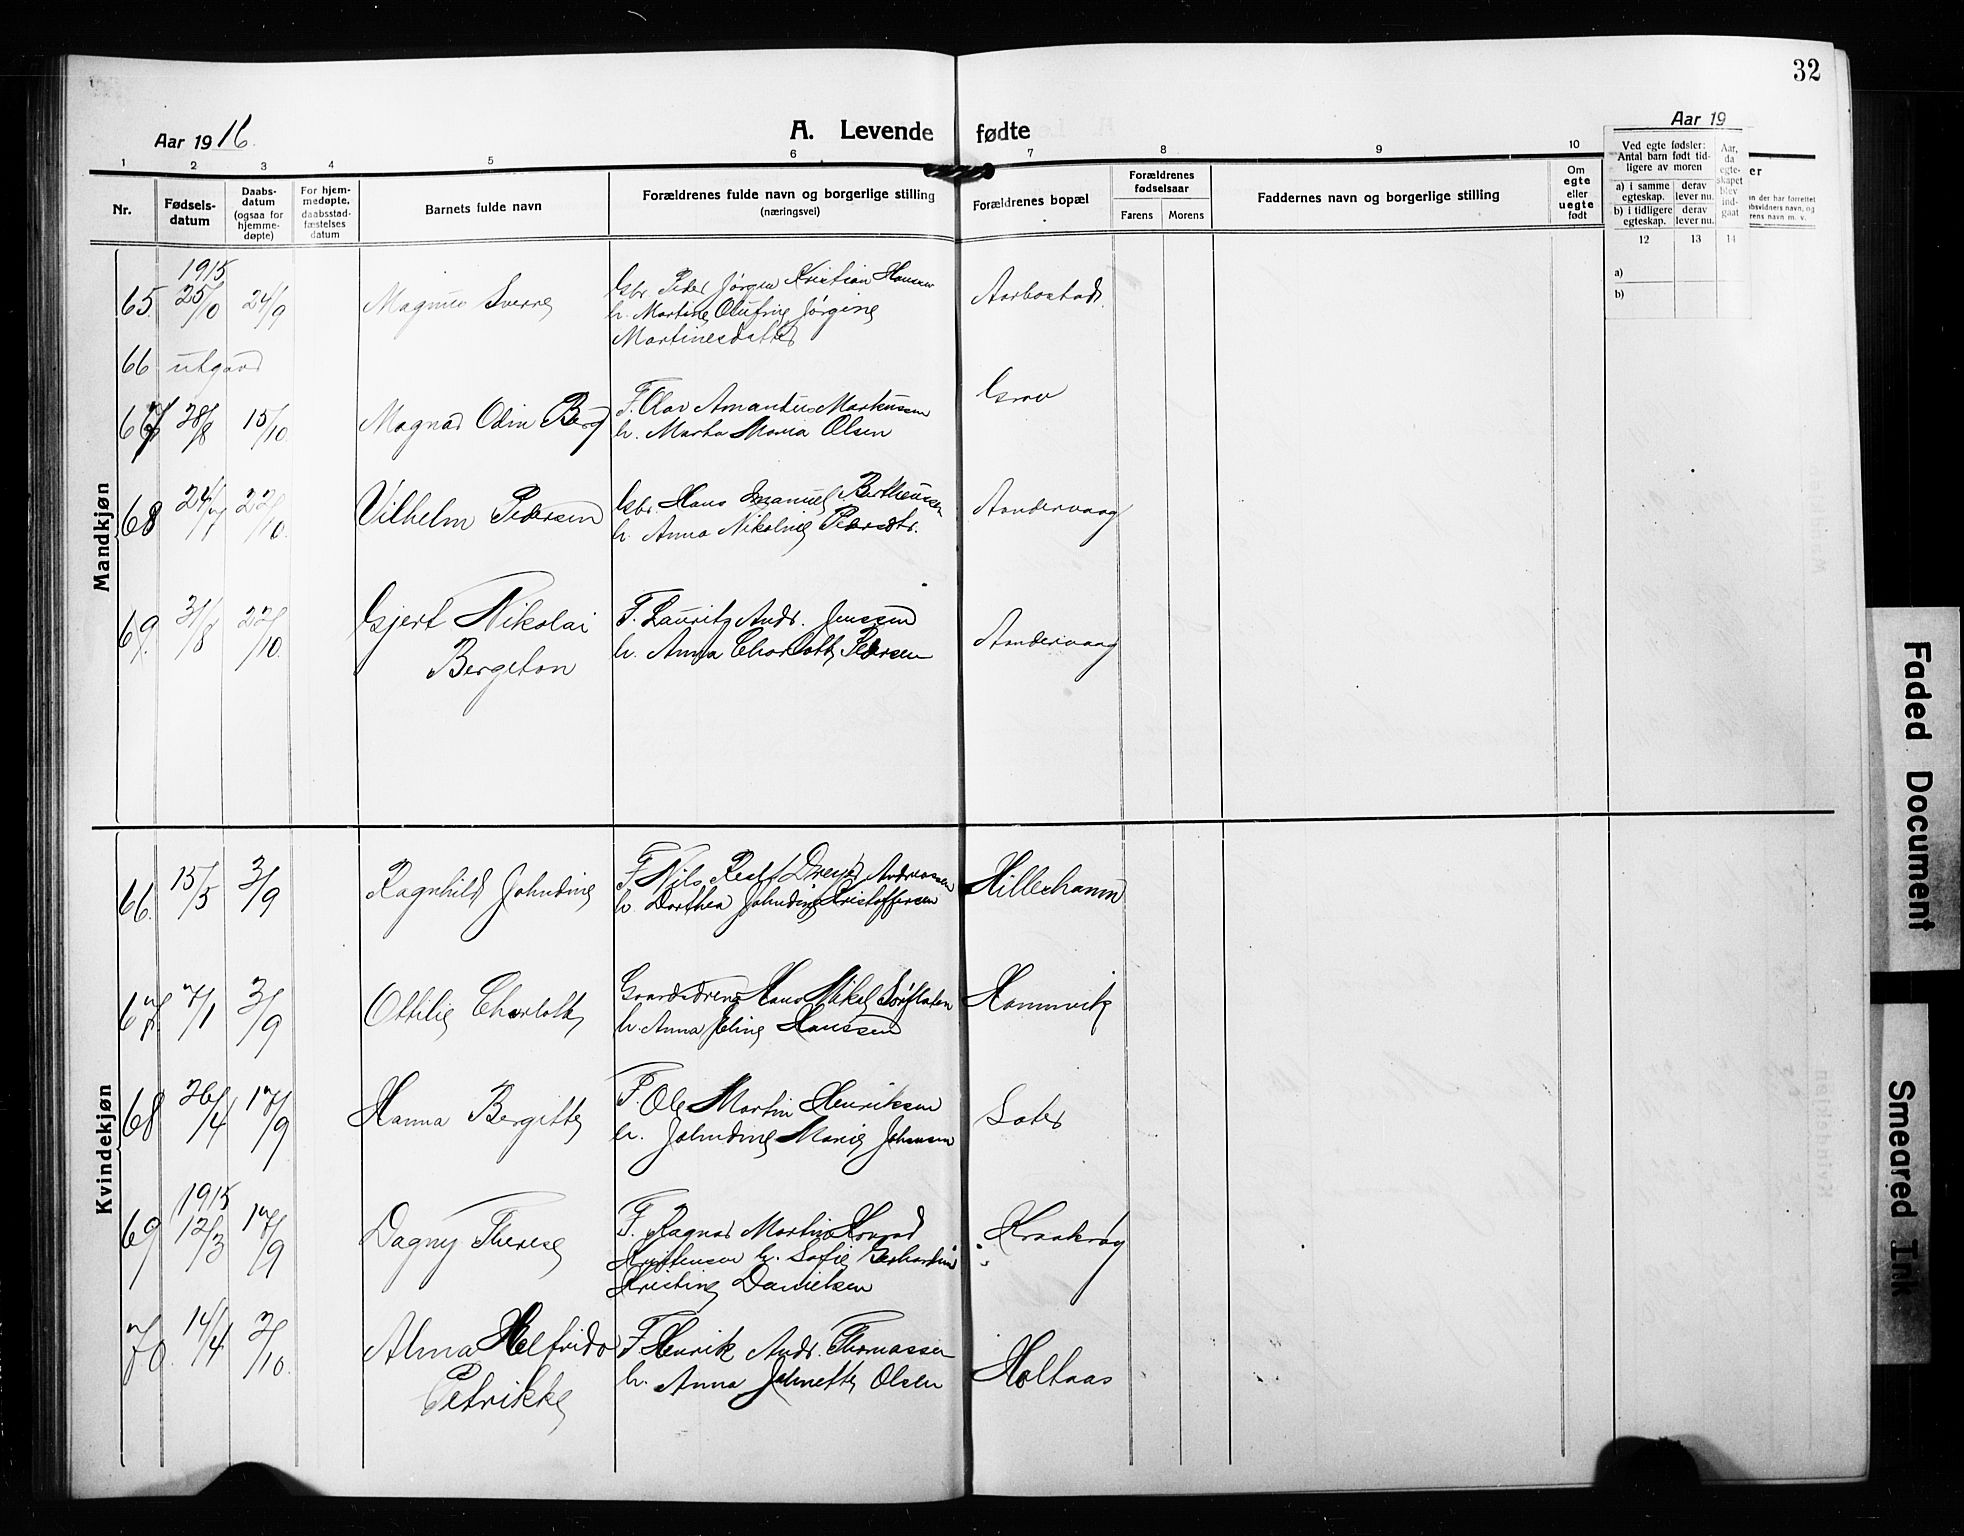 32
Aar 1916.
A. Levende fødte
Aar 19
1 2 3 4 5 6 7 8 9 10
Nr.
Fødsels-
datum
Daabs-
datum
(ogsaa for
hjemme-
døpte)
For hjem-
medøpte,
daabsstad-
fæstelses
datum
Barnets fulde navn
Forældrenes fulde navn og borgerlige stilling
(næringsvei)
Forældrenes bopæl
Forældrenes
fødselsaar
Farens Morens
Faddernes navn og borgerlige stilling
Om
egte
eller
uegte
født
Ved egte fødsler:
Antal barn født tid-
ligere av moren
a) i samme
egteskap.
derav
lever nu.
b) i tidligere
egteskap.
derav
lever nu.
Aar,
da
egte-
skapet
blev
ind-
gaat
12 13 14
a)
b)
Mandkjøn
1915
65. 25/10 24/9 Magnus Sverre
Gbr. Peder Jørgen Kristian Hansen
h. Martine Olufine Jørgine
Martinesdatter
Aarbostad.
66 utgaar
67 28/8 15/10. Magnar Odin Berg
F. Olav Amandus Markussen
h. Marta Maria Olsen
Grov
68 24/7 22/10. Vilhelm Pedersen
Gbr. Hans Emanuel Bertheussen
h. Anna Nikoline Pedersdtr.
Aandervaag
69. 31/8 22/10. Gjert Nikolai
Bergeton
F. Lauritz Andr. Jenssen
h. Anna Charlotte Pedersen
Aandervaag
Kvindekjøn
66. 15/5 3/9 Ragnhild Johndine
F. Nils Reslf Dreyer Andreassen
h. Dorthea Johndine Kristoffersen
Hilleshamn
67. 7/1 3/9 Ottilie Charlotte
Gaardsdreng Hans Mikel Sørflaten
h. Anna Jeline Hanssen
Hamnvik
68 26/4 17/9 Hanna Bergitte
F. Ole Martin Henriksen
h. Johndine Marie Johansen
Sater
1915
69 12/3 17/9 Dagny Therese
F. Ragnar Martin Konrad
Kristensen h. Sofie Gerhardine
Kristine Danielsen
Kraakrøy
70. 14/4 2/10. Alma Helfrida
Petrikke
F. Henrik Andr. Thomassen
h. Anna Johnette Olsen
Holtaas
Faded Document
Smeared Ink